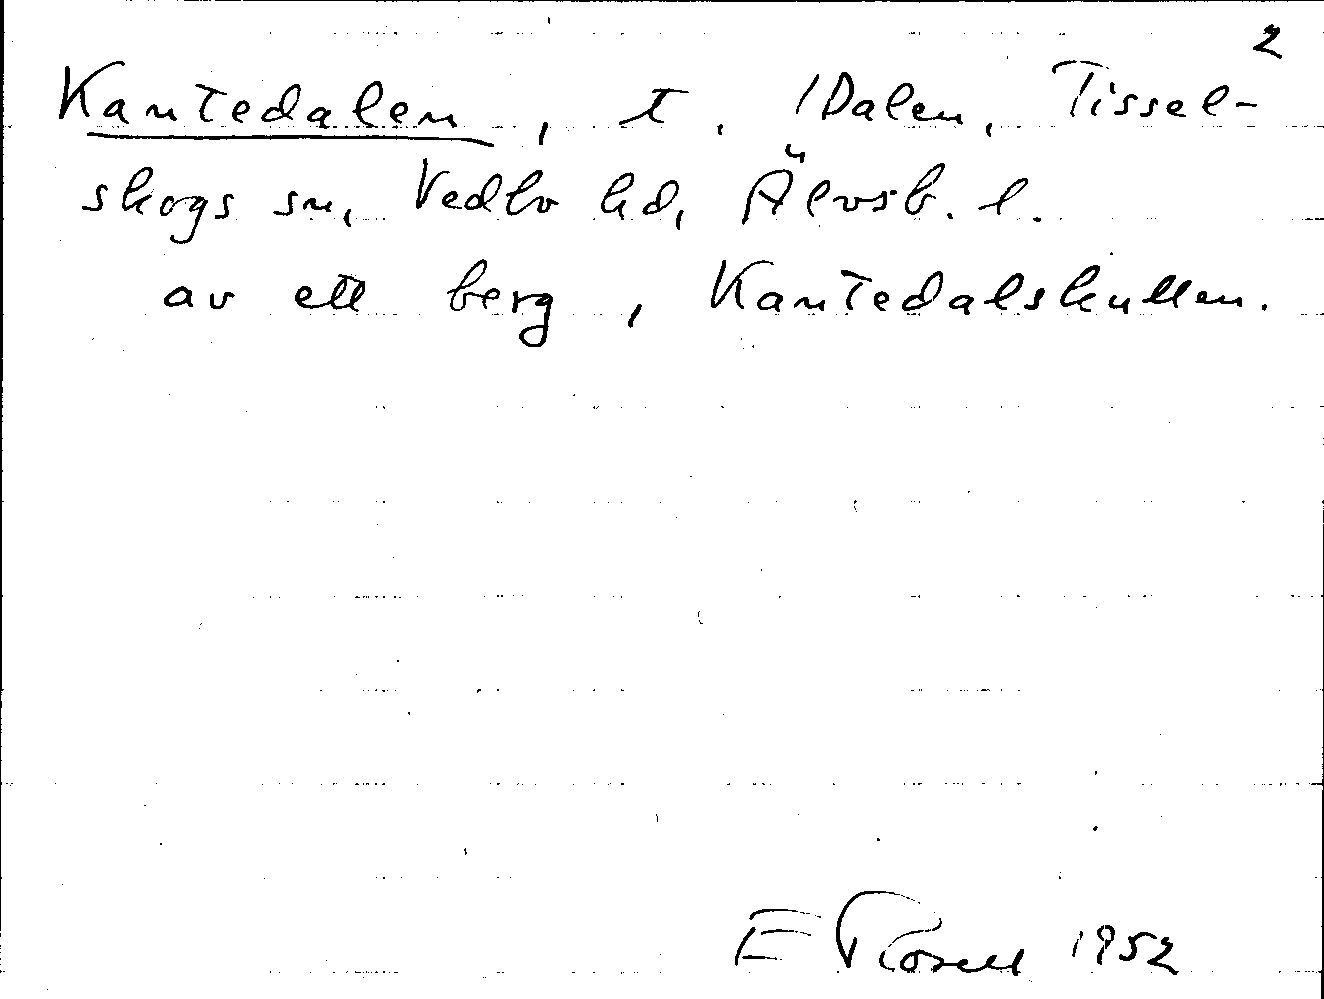 2
Kantedalen, t. 1 Dalen, Tissel-
skogs sn, Vedbo hd, Älvsb. l.
av ett berg, Kantedalskullen.
E Rosell 1952